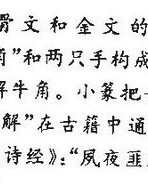 骨文和金文的
角”和两只手构成
解牛角。小篆把
解”在古籍中通
诗经》：“夙夜匪